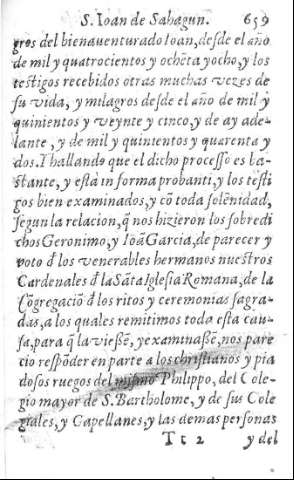 S. Ioan de Sahagun. 659
gros del bienauenturado Ioan, desde el año
de mil y quatrocientos y ochẽta y ocho, y los
testigos recebidos otras muchas vezes de
su vida, y milagros desde el año de mil y
quinientos y veynte y cinco, y de ay ade-
lante, y de mil y quinientos y quarenta y
dos. I hallando que el dicho processo es ba-
stante, y està in forma probanti, y los testi
gos bien examinados, y cõ toda solẽnidad,
segun la relacion, q̃ nos hizieron los sobredi
chos Geronimo, y Ioã Garcia, de parecer y
voto d̃ los venerables hermanos nuestros
Cardenales d̃ la Sãta Iglesia Romana, de la
Cõgregaciõ d̃ los ritos y ceremonias sagra-
das, a los quales remitimos toda esta cau-
sa, para q̃ la viessẽ, y examinassẽ, nos pare
cio respõder en parte a los christianos y pia
dosos ruegos del mismo Philippo, del Cole-
gio mayor de S. Bartholome, y de sus Cole
giales, y Capellanes, y las demas personas
Tt 2 y del